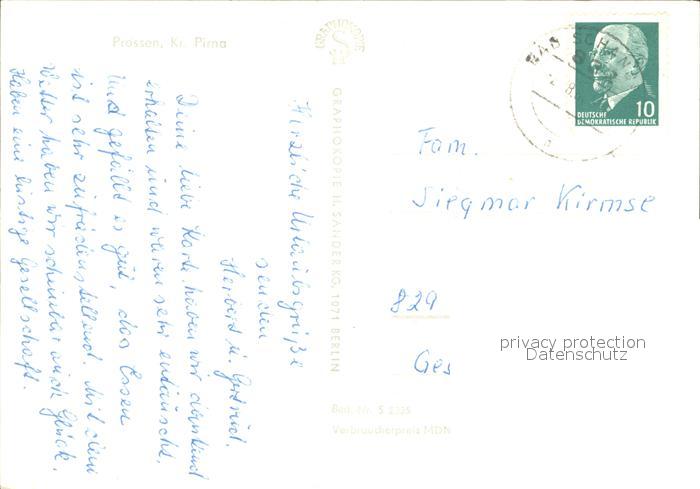 Prossen, Kr. Pirna
Herzliche Urlaubsgrüße
senden
Herbert u. Gertrud.
Deine liebe Karte haben wir dankend
erhalten und waren sehr entäuscht.
Uns gefällt es gut, das Essen
ist sehr zufriedenstellend. Mit dem
Wetter haben wir scheinbar auch Glück.
Haben eine lustige Gesellschaft.
GRAPHOKOPIE
GRAPHOKOPIE H. SANDER KG, 1071 BERLIN
BAD SCHANDAU
10
DEUTSCHE
DEMOKRATISCHE REPUBLIK
Fam.
Siegmar Kirmse
829
Ges
privacy protection
Datenschutz
Best. Nr. S 2335
Verbraucherpreis MDN